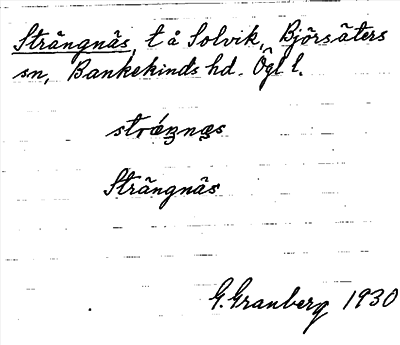 Strängnäs, t å Solvik, Björsäters
sn, Bankekinds hd. Ögl l.
strǽŋnæs
Strängnäs
G. Granberg 1930